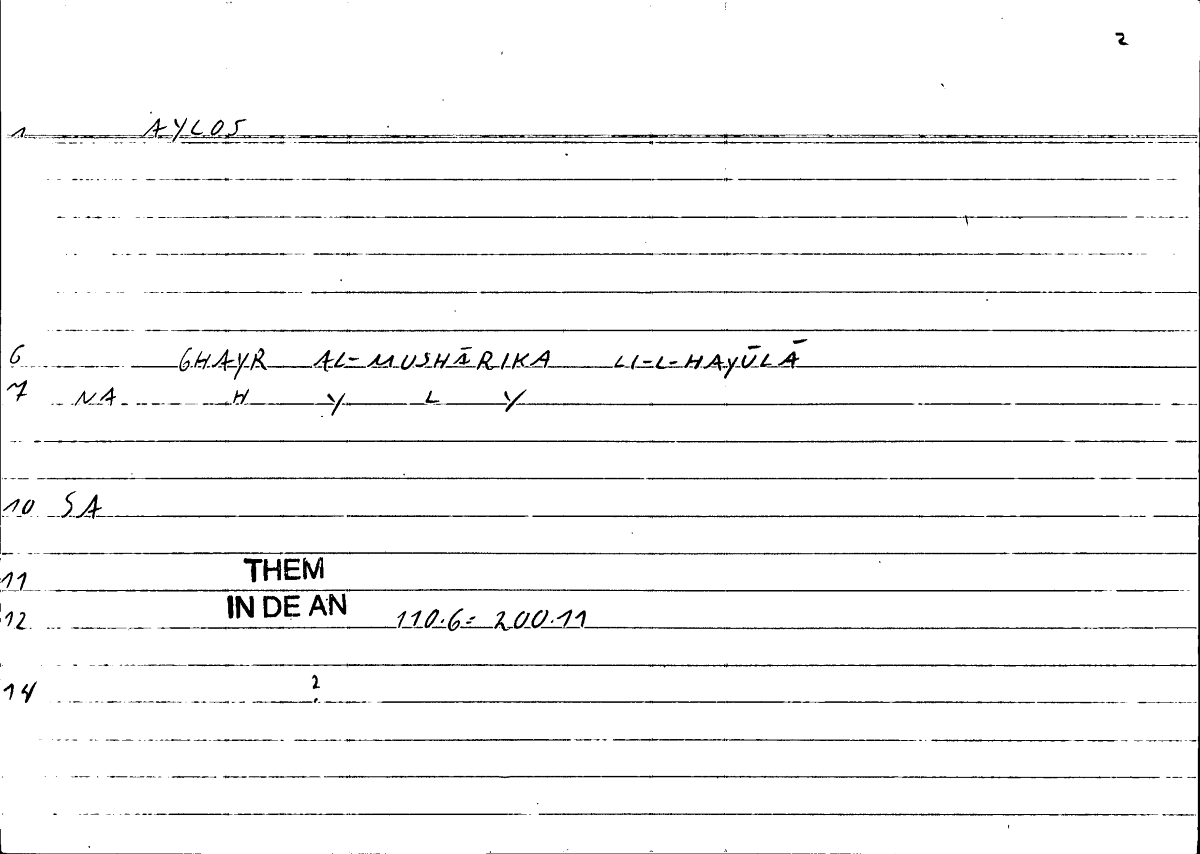 2
1 AYLOS
6 GHAYR AL-MUSHĀRIKA LI-L-HAYŪLĀ
7 NA H Y L Y
10 SA
11 THEM
12 IN DE AN 110.6= 200.11
14 2